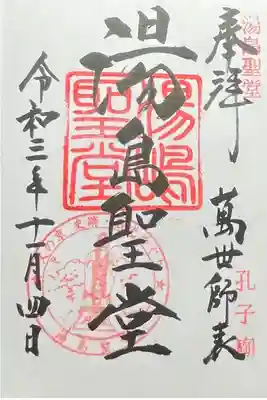 湯島聖堂
奉拝
萬世師表
孔子廟
湯島聖堂
湯島聖堂
令和三年十一月四日